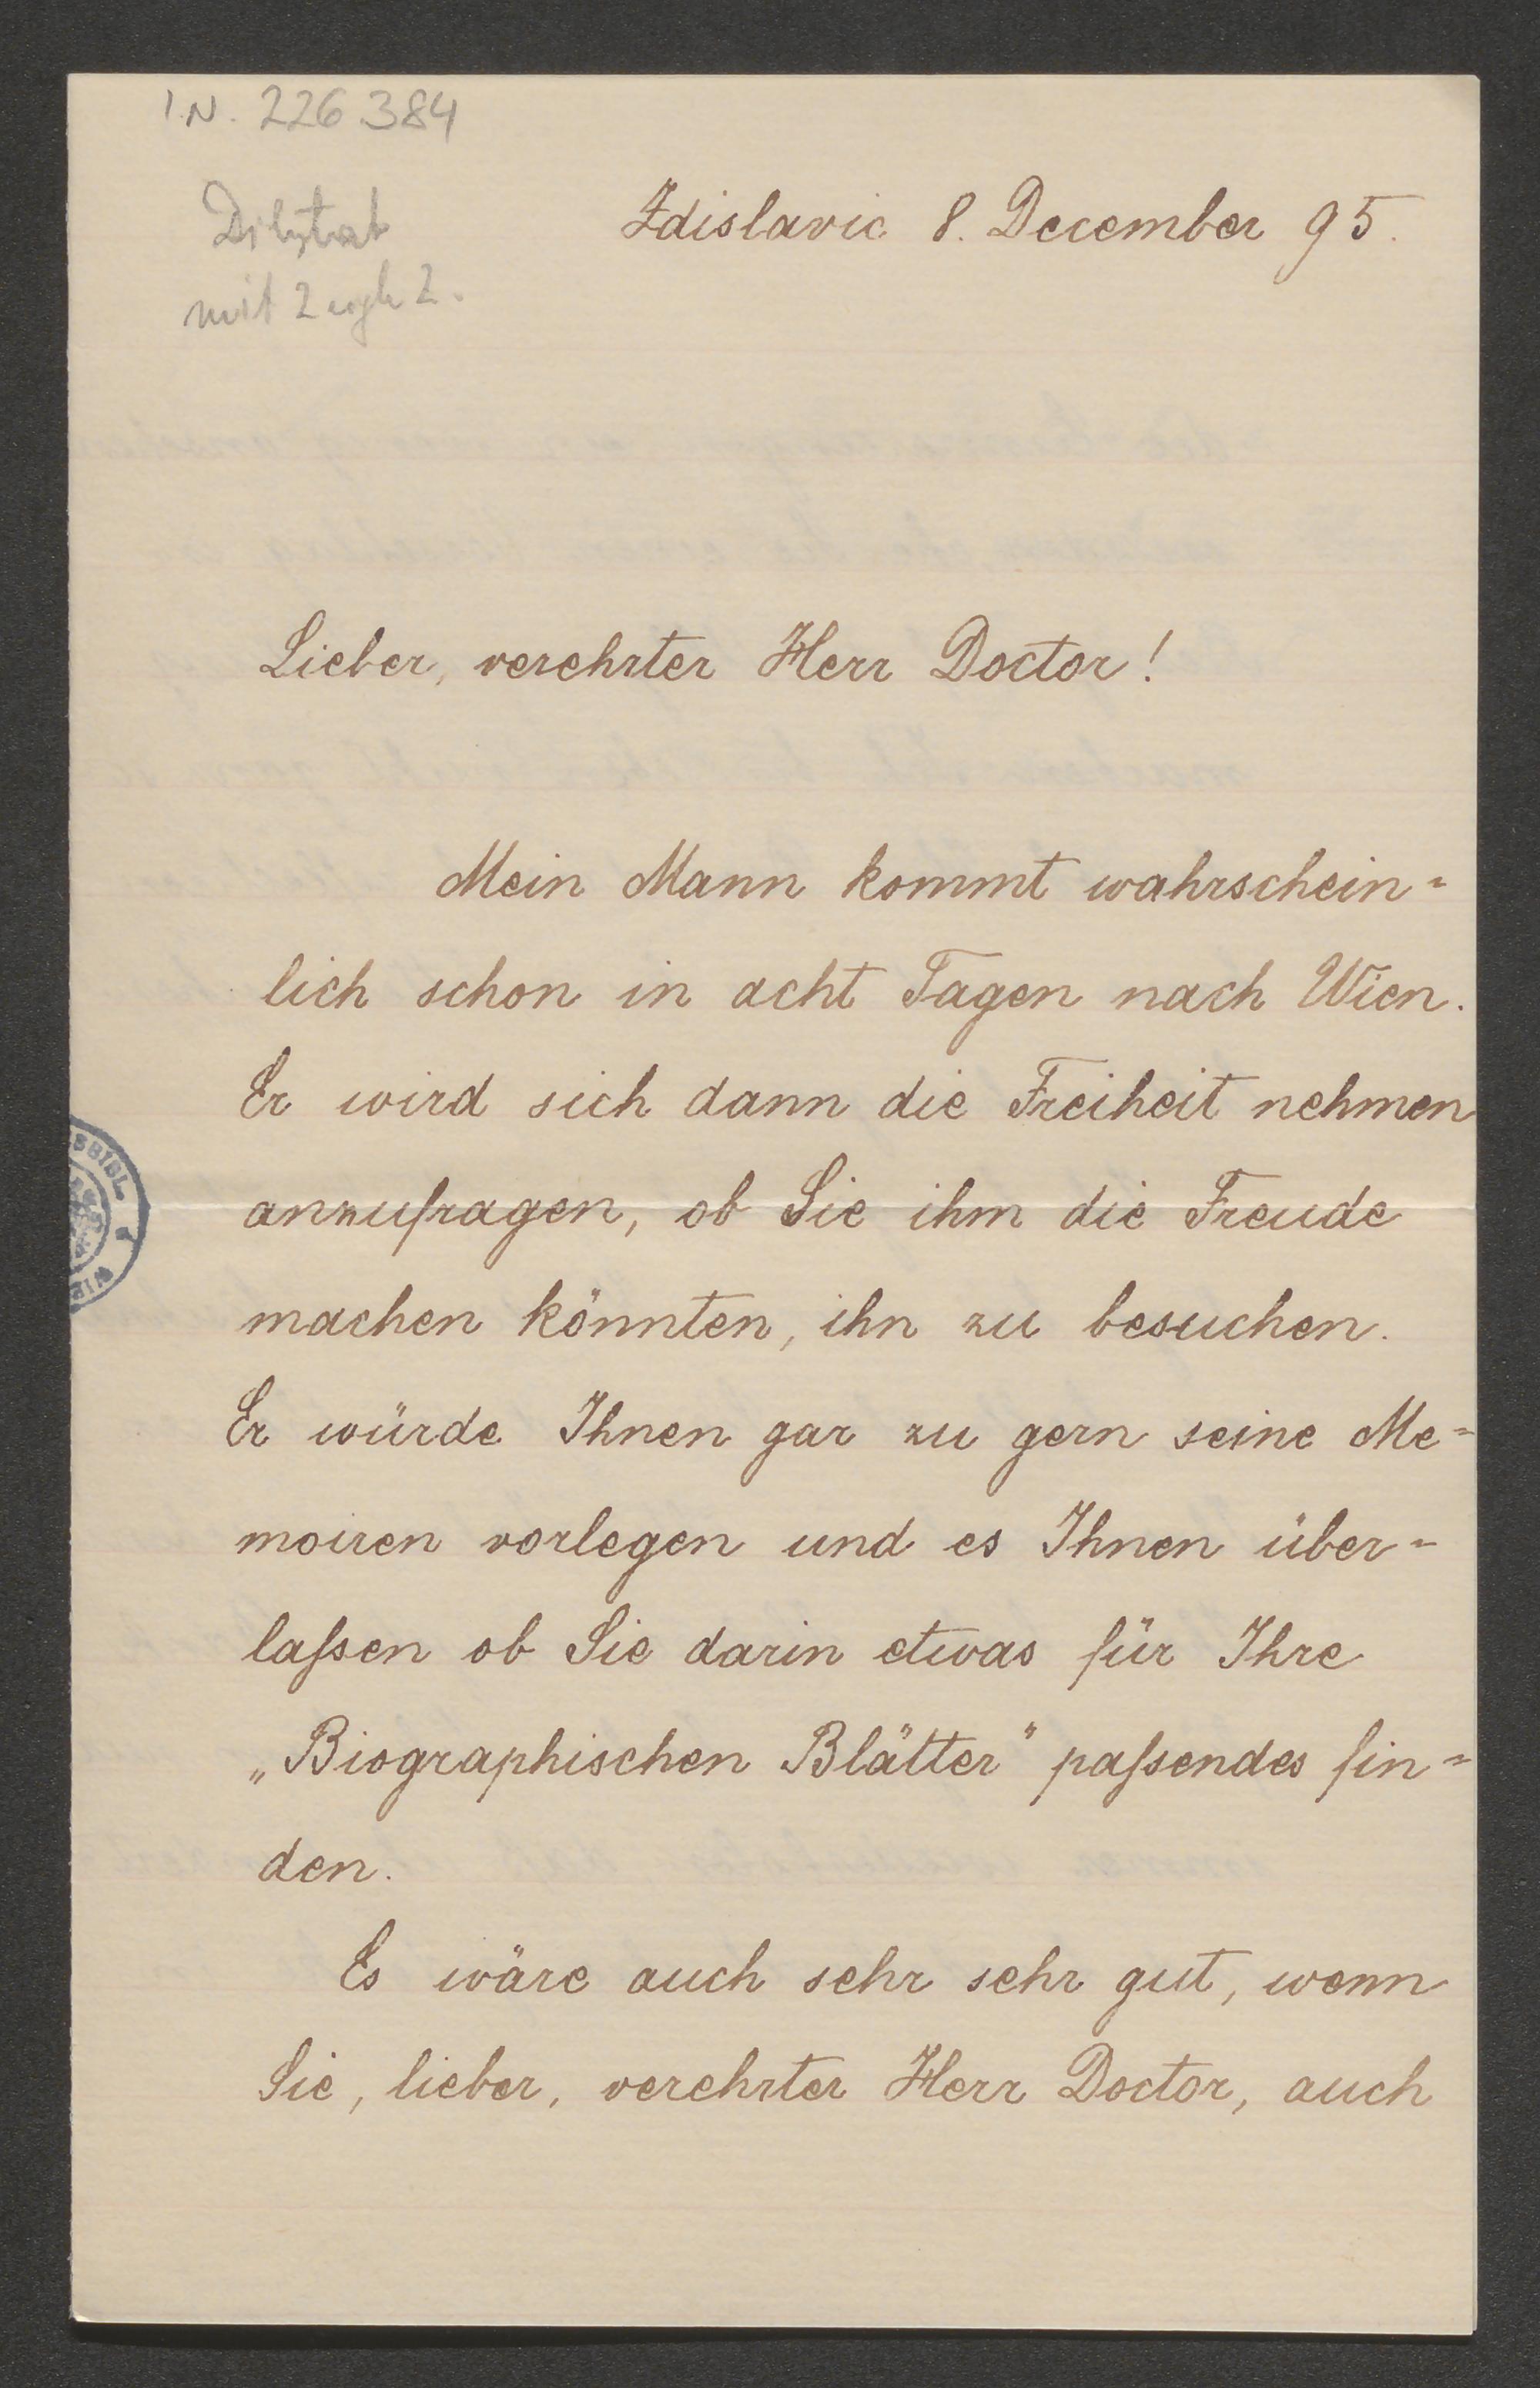 I.N. 226.384
Diktat
mit 2 egh Z.
Zdislavic 8. December 95.
Lieber, verehrter Herr Doctor!
Mein Mann kommt wahrschein-
lich schon in acht Tagen nach Wien.
Er wird sich dann die Freiheit nehmen
anzufragen, ob Sie ihm die Freude
machen könnten, ihn zu besuchen.
Er würde Ihnen gar zu gern seine Me-
moiren vorlegen und es Ihnen über-
laſsen ob Sie darin etwas für Ihre
„Biographischen Blätter" paſsendes fin-
den.
Es wäre auch sehr sehr gut, wenn
Sie, lieber, verehrter Herr Doctor, auch